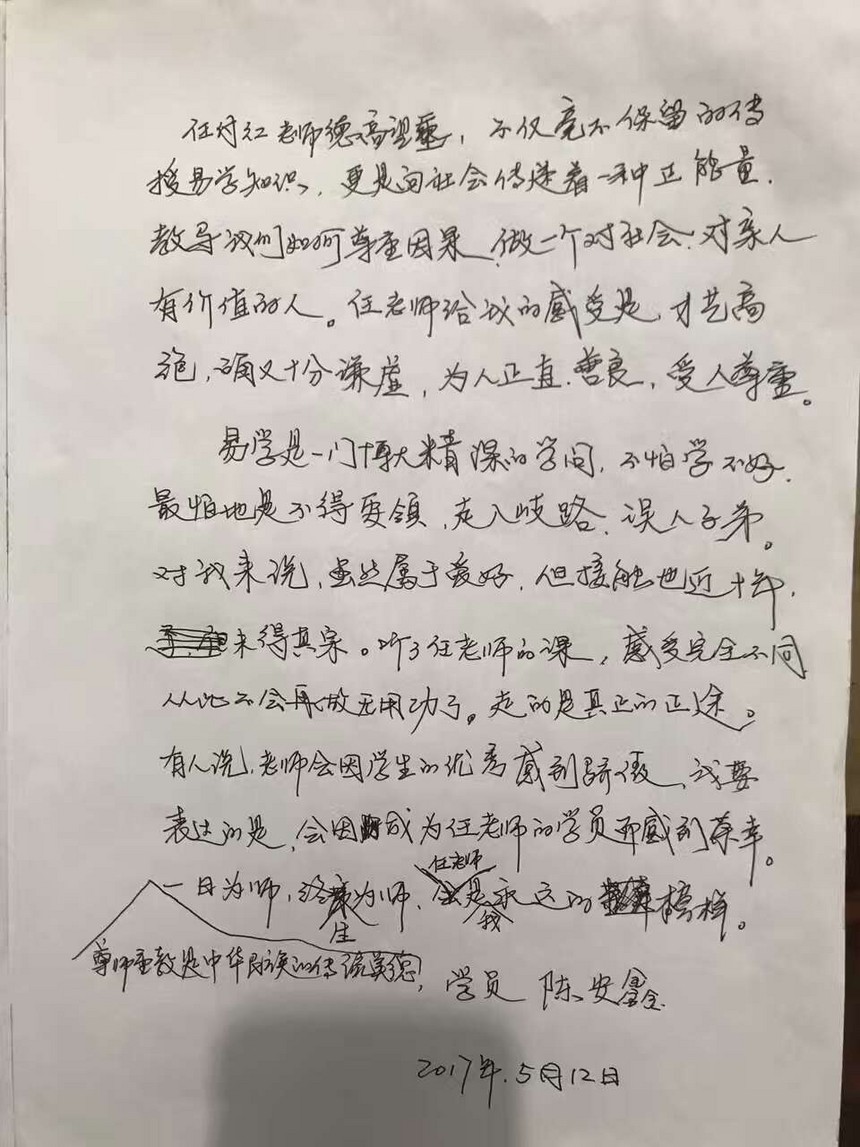 任付红老师德高望重，不仅毫不保留的传
授易学知识，更是向社会传递着一种正能量.
教导我们如何尊重因果、做一个对社会.对亲人
有价值的人。任老师给我的感受是，才艺高
，确又十分谦虚，为人正直.善良，受人尊重。
易学是一门博大精深的学问，不怕学不好.
最怕地是不得要领，走入歧路、误人子弟。
对我来说，虽然属于爱好，但接触也近十年，
未得其宗。听了任老师的课，感受完全不同
从此不会再做无用功了。走的是真正的正途。
有人说，老师会因学生的优秀感到骄傲，我要
表达的是，会因成为任老师的学员而感到荣幸。
任老师
一日为师，终为师、是永远的榜样。
生
我
尊师重教是中华民族的传统美德，
学员 陈安鑫
2017年.5月12日